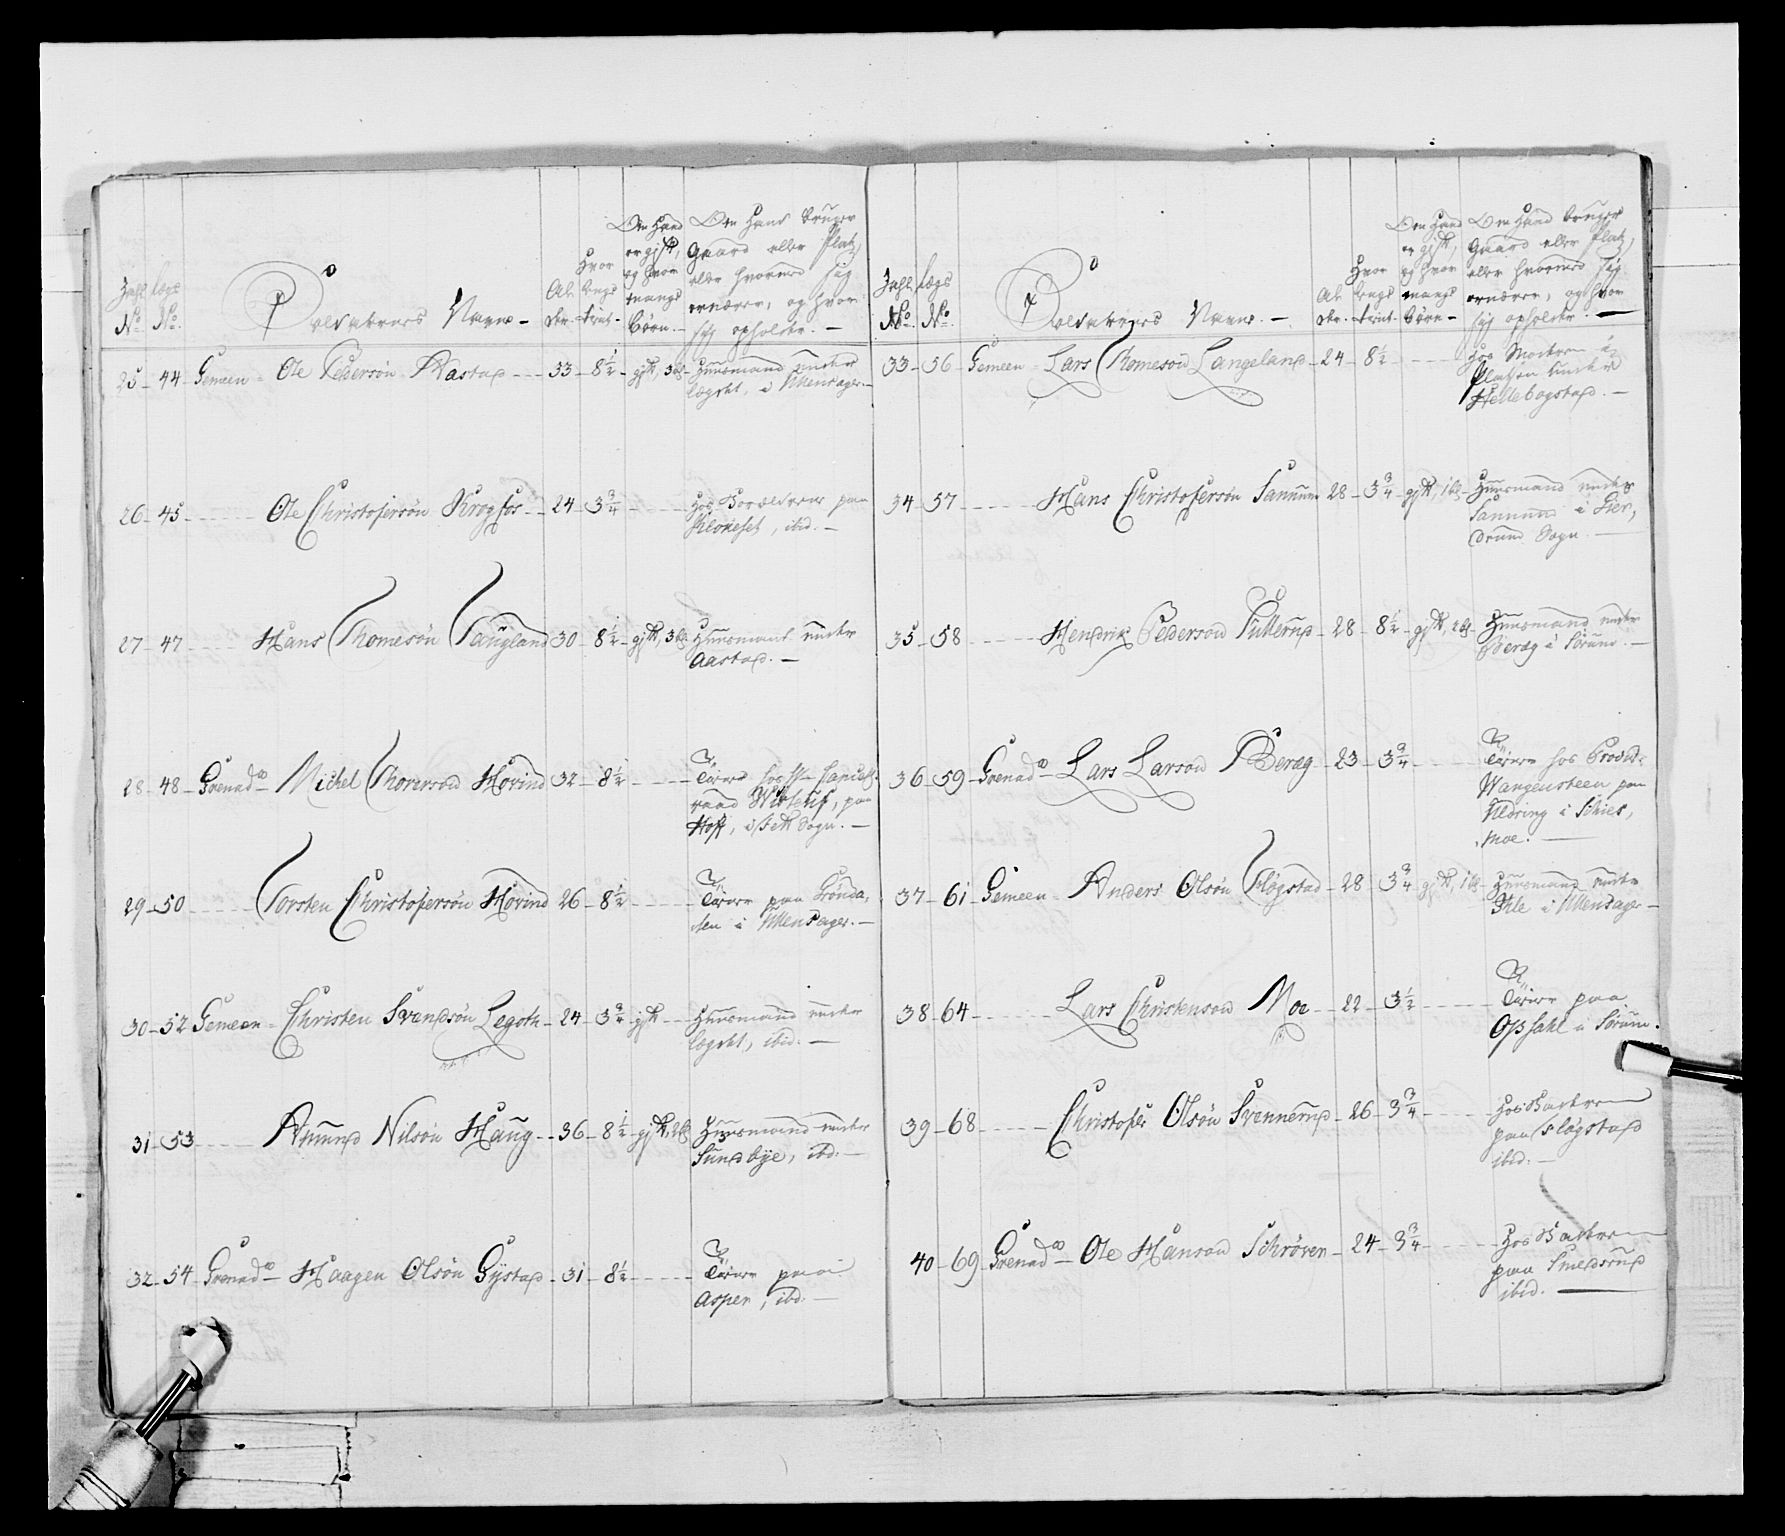 Zahl No.
Lægs No.
Soldaternes Navne
Alder.
Hvor lenge tient.
Om Hand er gift, og hvor mange Børn.
Om Hand bruger
Gaard eller Platz,
eller hvormed sig
ernærer, og hvor
sig opholder.
25 44 Gemeen Ole Pedersøn Aastad 33 8½ gift, 3 B. Huusmand under
Løgstet, i Ullensager.
26 45 Ole Christofersøn Krogfos 24 3¾ Hos Forældrene paa
Kloneset, ibid.
27 47 Hans Thomesøn Taugland 30 8½ gift, 3 B. Huusmand under
Aastad.
28 48 Grenadr Michel Thoresson Hovind 32 8½ Tiener hos Hr
raad, paa
Hoff, i Fett Sogn.
29 50 Torsten Christofersøn Hovind 26 8½ Tiener paa Grønda,
len i Ullensager.
30 52 Gemeen Christen Svendsøn Legoth 24 3¾ gift Huusmand under
Løgstet, ibid.
31 53 Amund Nilsøn Haug 36 8½ gift, 2 B. Huusmand under
Sundbye, ibd.
32 54 Grenadr Haagen Olsøn Gystad 31 8½ Tiener paa
Asper, ibd.
Zahl No.
Lægs No.
Soldaternes Navne.
Alder.
Hvor lenge tient.
Om Hand er gift, og hvor mange Børn.
Om Hand bruger
Gaard eller Platz,
eller hvormed sig
ernærer, og hvor
sig opholder.
33 56 Gemeen Lars Thomeson Langeland 24 8½ Hos Moderen
Pladsen under
Hellebogstad.
34 57 Hans Christofersøn Sannum 28 3¾ gift, 1 B. Huusmand under
Sannum i Gier,
drum Sogn.
35 58 Hendrik Pederson Tullerud 28 8½ gift, 2 B. Huusmand under
Beræg i Sørum.
36 59 Grenadr Lars Larson Beræg 23 3¾ Tiener hos Provst
Wangensteen paa
Uldring i Schies,
moe.
37 61 Gemeen Anders Olsøn Fløgstad 28 3¾ gift, 1 B. Huusmand under
Kle i Ullensager
38 64 Lars Christenson Moe 22 3½ Tiener paa
Opsahl i Sørum.
39 68 Christofer Olsøn Svennerud 26 3¾ Hos Faderen
paa Fløgstad
ibid.
40 69 Grenadr Ole Hanson Schrøver 24 3¾ Hos Faderen
paa Smedsrud
ibid.